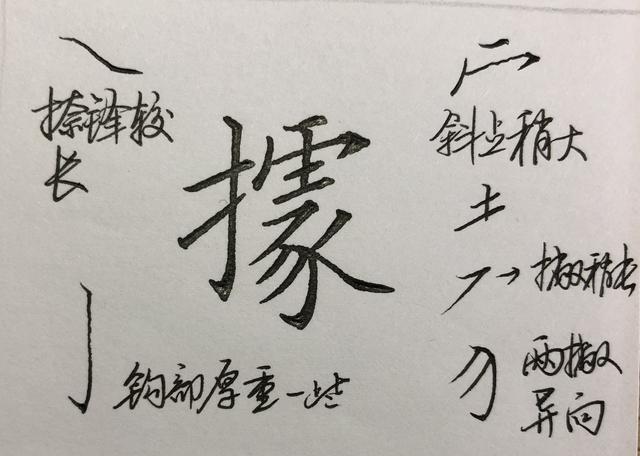 捺锋较
长
據
斜点稍大
撇稍长
两撇
异向
钩部厚重一些